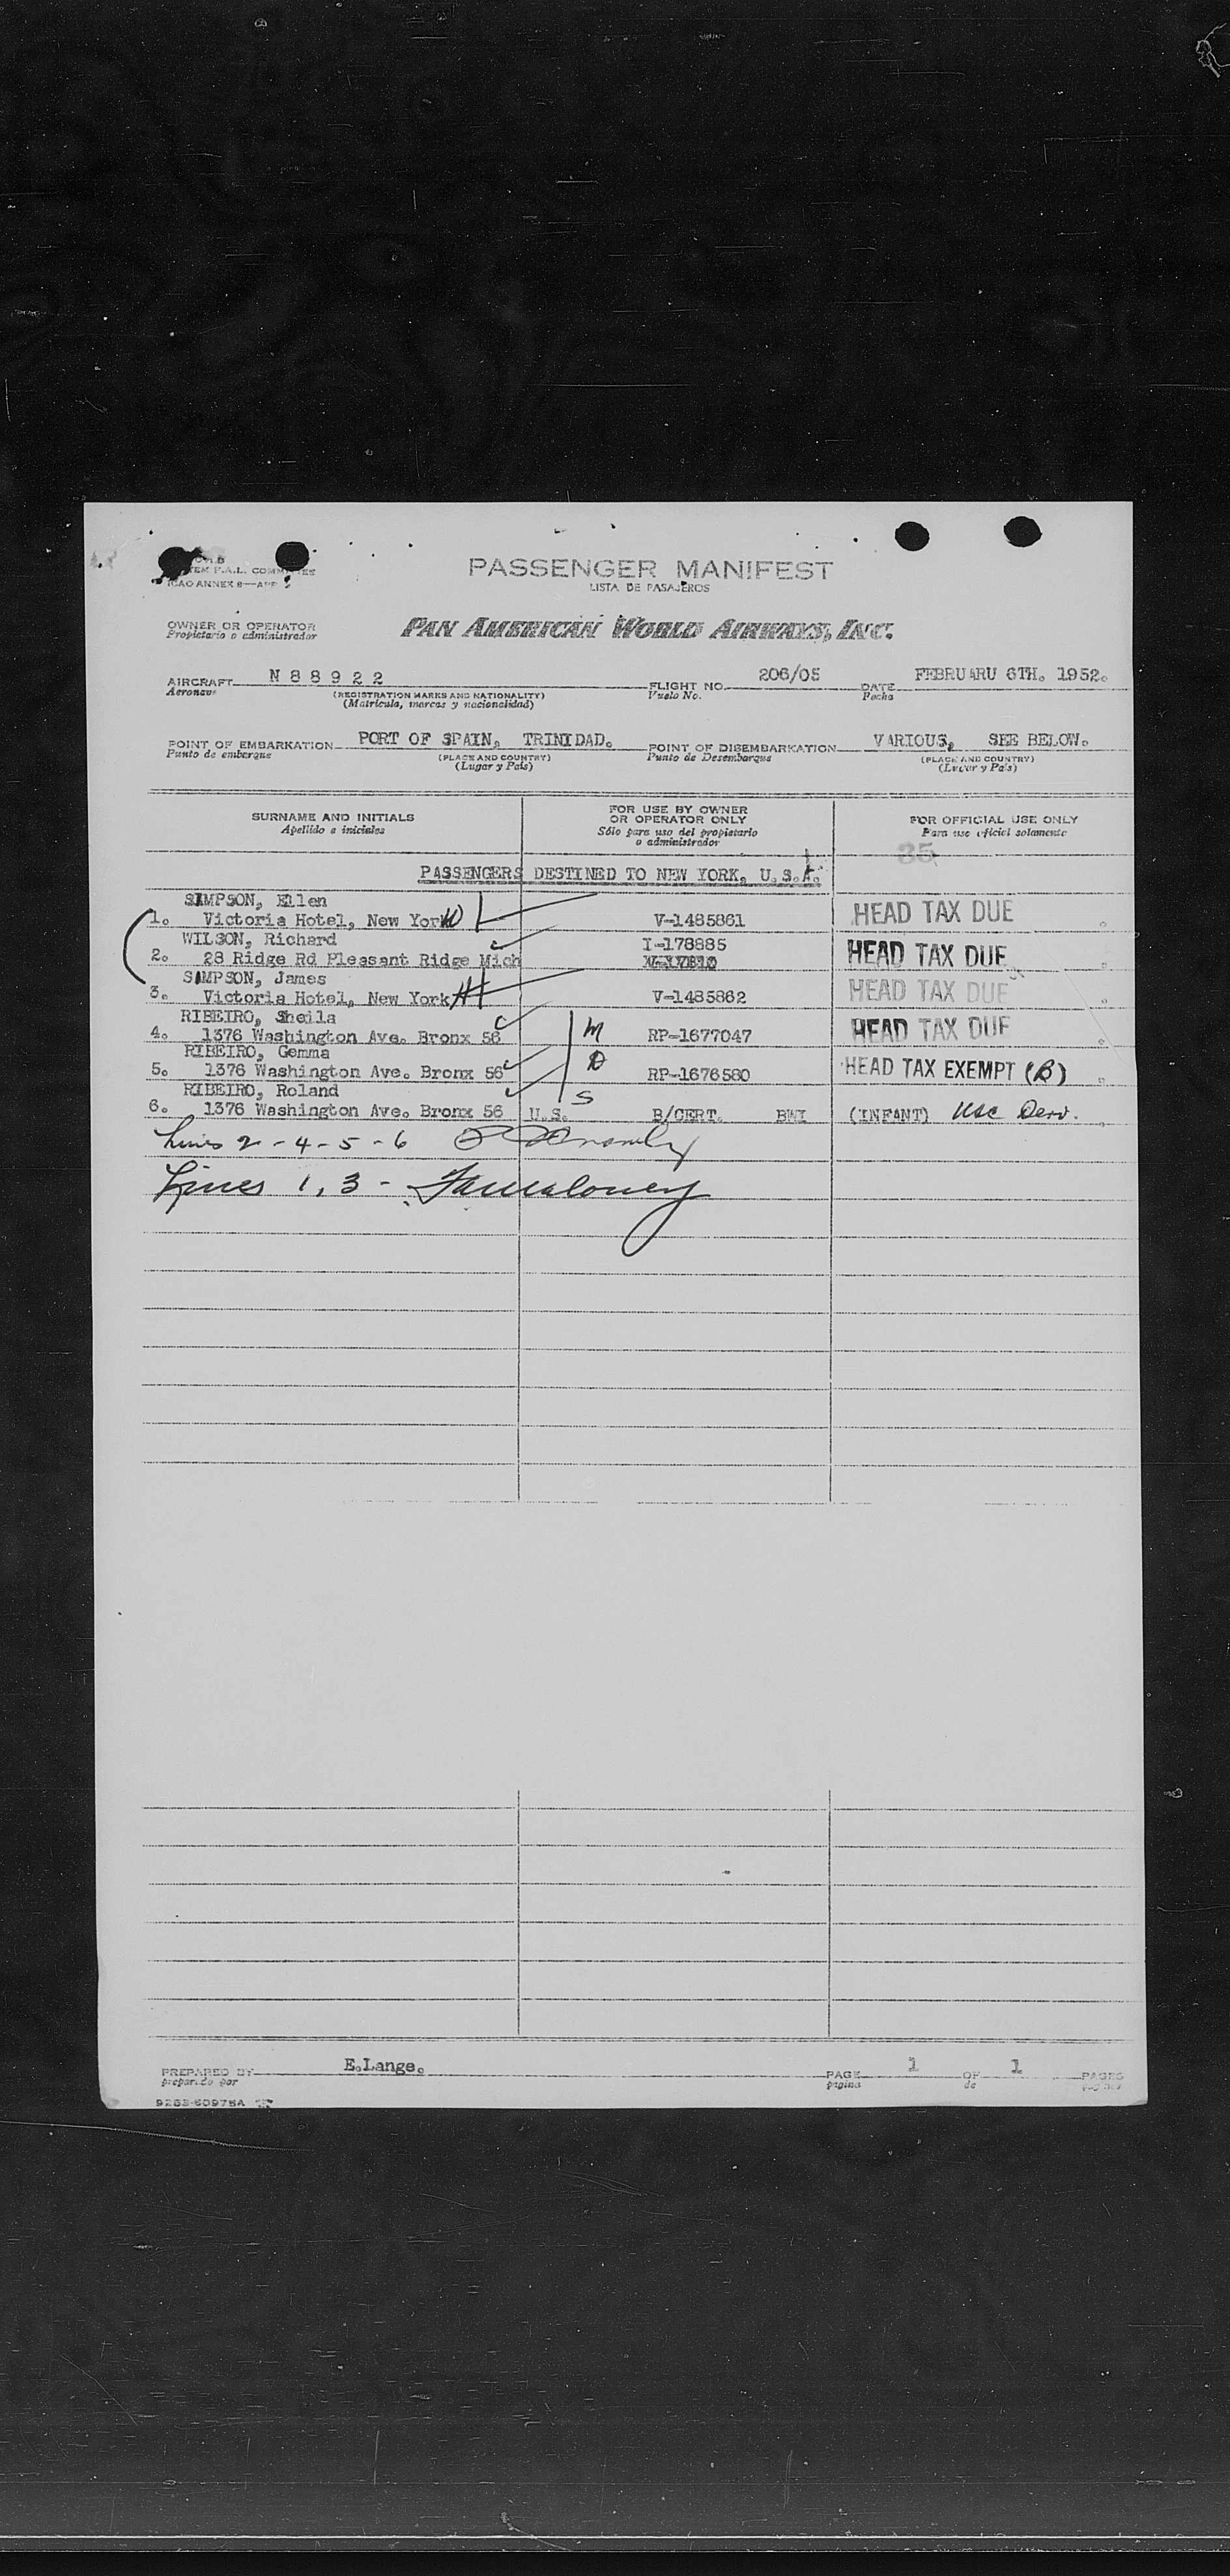 ICAO ANNEX 9—APP
PASSENGER MANIFEST
LISTA DE PASAJEROS
OWNER OR OPERATOR
Propietario o administrador
PAN AMERICAN WORLD AIRWAYS, INC.
AIRCRAFT N 8 8 9 2 2 FLIGHT NO. 206/05 DATE FEBRUARU 6TH. 1952.
Aeronave (REGISTRATION MARKS AND NATIONALITY) Vuelo No. Fecha
(Matricula, marcas y nacionalidad)
POINT OF EMBARKATION PORT OF SPAIN, TRINIDAD. POINT OF DISEMBARKATION VARIOUS, SEE BELOW.
Punto de embarque (PLACE AND COUNTRY) Punto de Desembarque (PLACE AND COUNTRY)
(Lugar y País) (Lugar y País)
SURNAME AND INITIALS FOR USE BY OWNER OR OPERATOR ONLY FOR OFFICIAL USE ONLY
Apellido e iniciales Sólo para uso del propietario o administrador Para uso oficial solamente
35
PASSENGERS DESTINED TO NEW YORK, U.S.A.
SIMPSON, Ellen
1. Victoria Hotel, New York W V-1485861 HEAD TAX DUE
WILSON, Richard I-178885
2. 28 Ridge Rd Pleasant Ridge Mich HEAD TAX DUE
SIMPSON, James
3. Victoria Hotel, New York H V-1485862 HEAD TAX DUE
RIBEIRO, Sheila
4. 1376 Washington Ave. Bronx 56 M RP-1677047 HEAD TAX DUE
RIBEIRO, Gemma
5. 1376 Washington Ave. Bronx 56 D RP-1676580 HEAD TAX EXEMPT (B)
RIBEIRO, Roland S
6. 1376 Washington Ave. Bronx 56 U.S. B/CERT. BWI (INFANT) USC Derv.
Lines 2 - 4 - 5 - 6
Lines 1, 3 -
PREPARED BY E.Lange. PAGE 1 OF 1 PAGES
preparado por página de